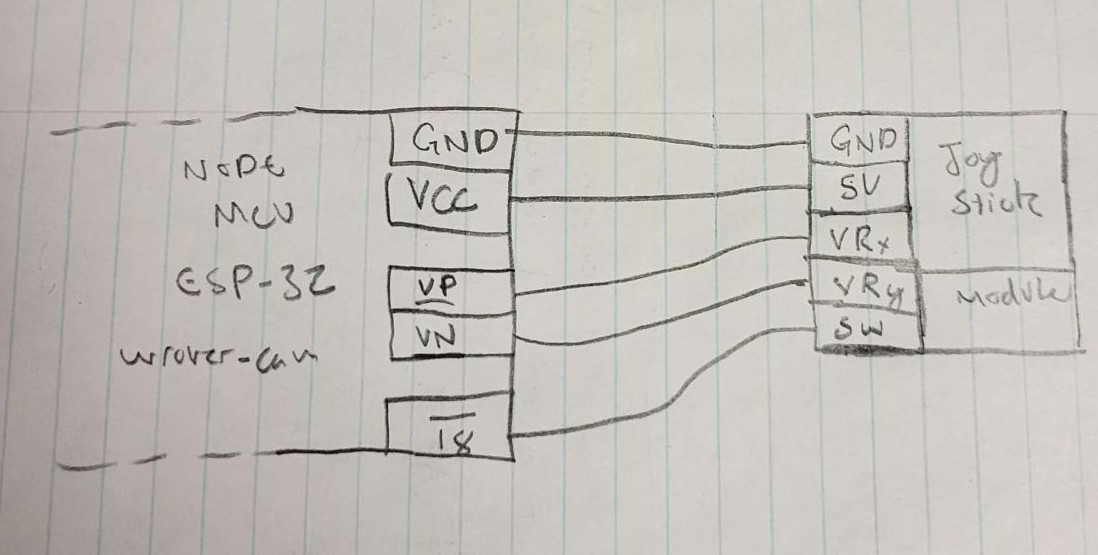 NODE
MCU
ESP-32
wrover-cam
GND
VCC
VP
VN
18
GND
5V
VRx
VRy
SW
Joy
Stick
Module